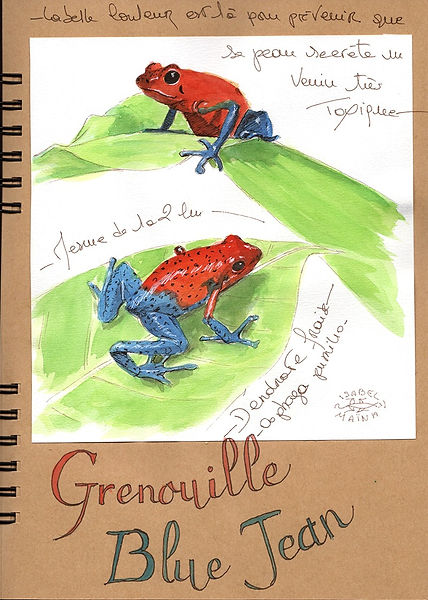 La belle couleur est là pour prévenir que
sa peau secrète un
venin très
Toxique
Mesure de 1 à 2 cm
Dendrobate fraise
oophaga pumilio
IZABEL
Grenouille
Blue Jean